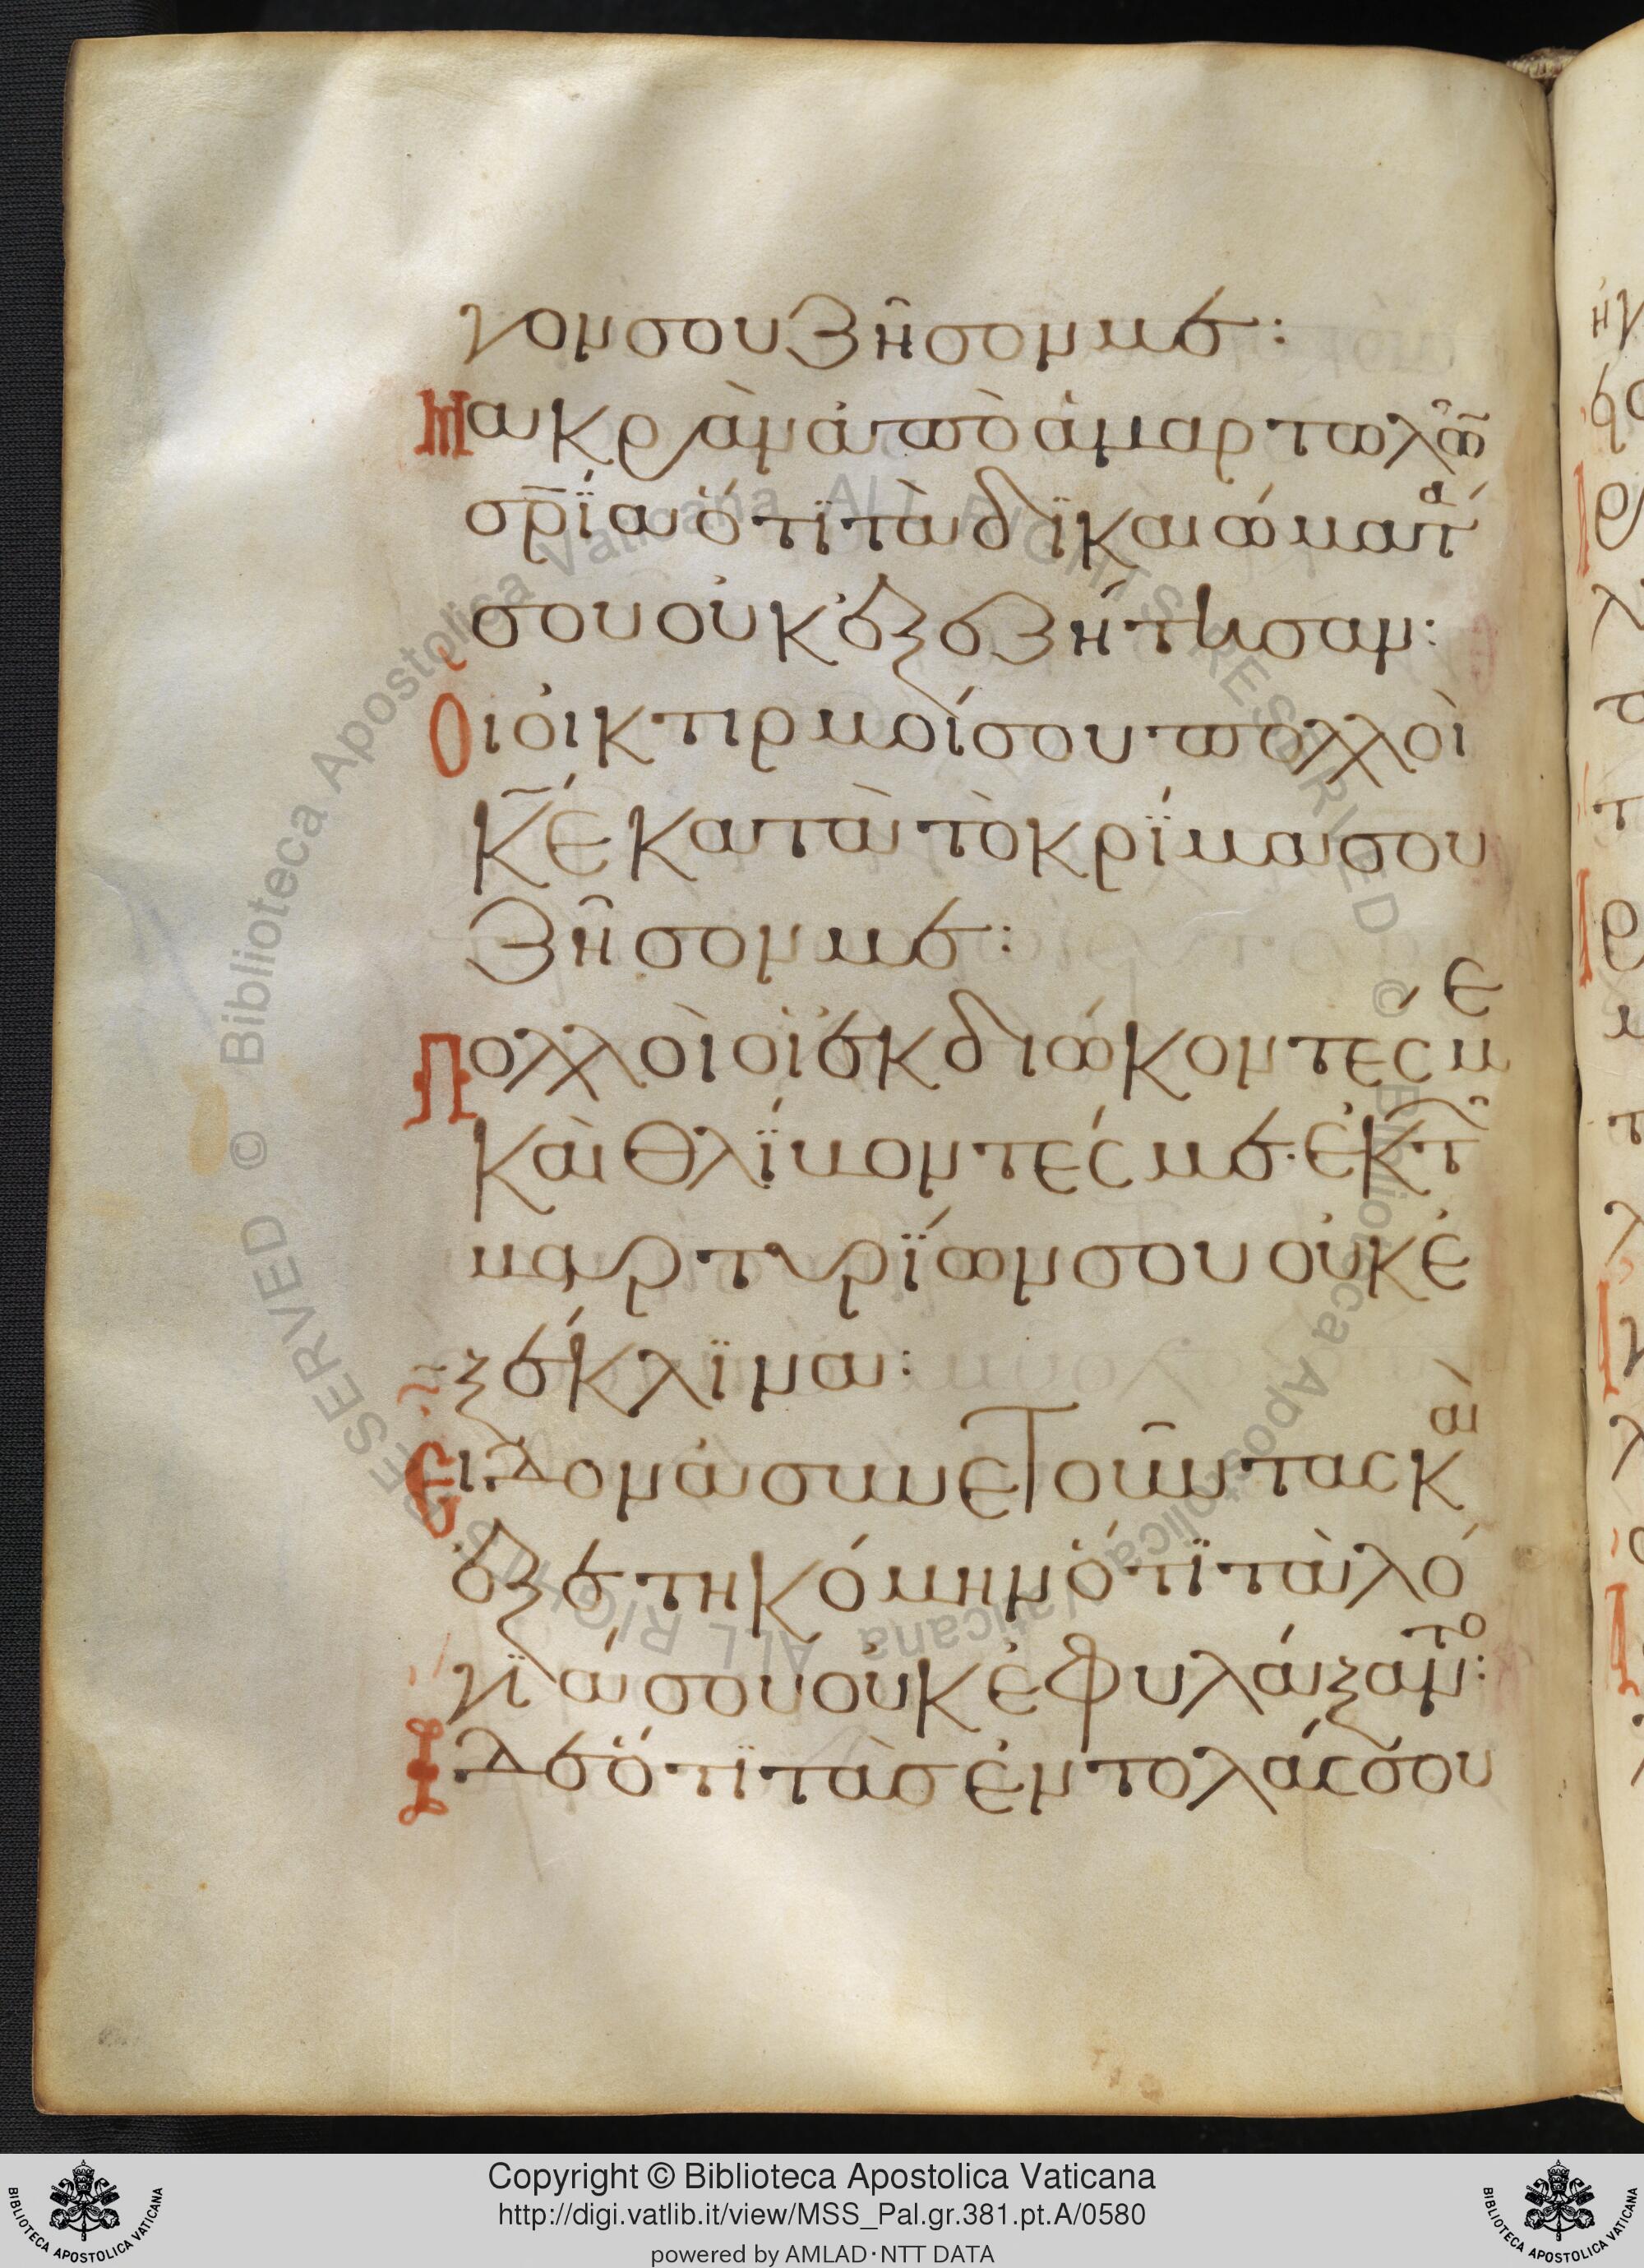 γον σου ζῆσον με:
Μακρὰν ἀπὸ ἁμαρτωλῶ̃
σρ̅ία ὅτϊ τὰ δϊκαιώματα
σου οὐκ ἐξεζήτησαν:
Οι οἰκτιρμοί σου πολλοὶ
Κ̅Ε κατὰ τὸ κρίμα σου
ζῆσον με:
Πολλοὶ οἱ ἐκδιώκοντες με
καὶ θλίβοντές με· ἐκ τῶν
μαρτυρίων σου οὐκ ἐ
ξέκλϊνα:
Εἶδον ἀσυνετοῦντας καὶ
ἐξετηκόμην ὅτϊ τὰ λό
γϊά σου οὐκ ἐφυλάξαντο:
Ἴδε ὅτϊ τὰσ ἐντολάς σου
Copyright © Biblioteca Apostolica Vaticana
http://digi.vatlib.it/view/MSS_Pal.gr.381.pt.A/0580
powered by AMLAD·NTT DATA
BIBLIOTECA APOSTOLICA VATICANA
BIBLIOTECA APOSTOLICA VATICANA
© Biblioteca Apostolica Vaticana ALL RIGHTS RESERVED
© Biblioteca Apostolica Vaticana ALL RIGHTS RESERVED